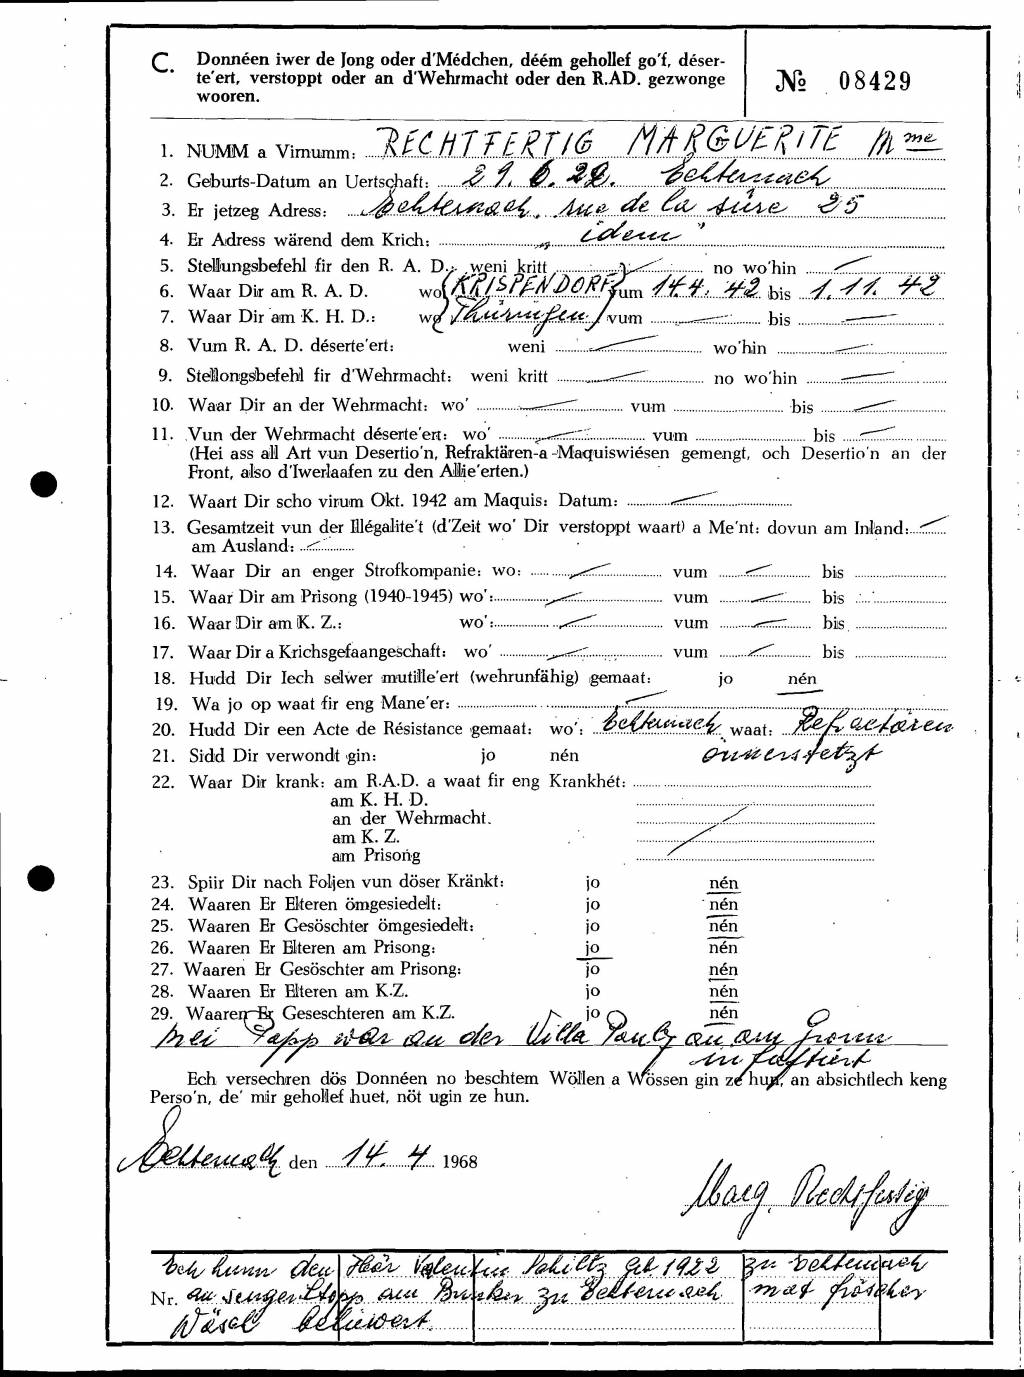 C. Donnéen iwer de Jong oder d'Médchen, déém gehollef go'f, déser-
te'ert, verstoppt oder an d'Wehrmacht oder den R.AD. gezwonge
wooren.
№ 08429
1. NUMM a Virnumm: RECHTFERTIG MARGUERITE Mme
2. Geburts-Datum an Uertschaft: 29. 6. 22. Echternach
3. Er jetzeg Adress: Echternach, rue de la sûre 25
4. Er Adress wärend dem Krich: „ idem "
5. Stellungsbefehl fir den R. A. D.: weni kritt no wo'hin
6. Waar Dir am R. A. D. wo (KRISPENDORF) vum 14.4. 42 bis 1. 11. 42
7. Waar Dir am K. H. D.: wo (Thüringen) vum bis
8. Vum R. A. D. déserte'ert: weni wo'hin
9. Stellongsbefehl fir d'Wehrmacht: weni kritt no wo'hin
10. Waar Dir an der Wehrmacht: wo' vum bis
11. Vun der Wehrmacht déserte'ert: wo' vum bis
(Hei ass all Art vun Desertio'n, Refraktären-a-Maquiswiésen gemengt, och Desertio'n an der
Front, also d'Iwerlaafen zu den Allie'erten.)
12. Waart Dir scho virum Okt. 1942 am Maquis: Datum:
13. Gesamtzeit vun der Illégalite't (d'Zeit wo' Dir verstoppt waart) a Me'nt: dovun am Inland:
am Ausland:
14. Waar Dir an enger Strofkompanie: wo: vum bis
15. Waar Dir am Prisong (1940-1945) wo': vum bis
16. Waar Dir am K. Z.: wo': vum bis
17. Waar Dir a Krichsgefaangeschaft: wo' vum bis
18. Hudd Dir Iech selwer mutille'ert (wehrunfähig) gemaat: jo nén
19. Wa jo op waat fir eng Mane'er:
20. Hudd Dir een Acte de Résistance gemaat: wo': Echternach waat: Refractären
21. Sidd Dir verwondt gin: jo nén ënnerstetzt
22. Waar Dir krank: am R.A.D. a waat fir eng Krankhét:
am K. H. D.
an der Wehrmacht.
am K. Z.
am Prisong
23. Spiir Dir nach Foljen vun döser Kränkt: jo nén
24. Waaren Er Elteren ömgesiedelt: jo nén
25. Waaren Er Gesöschter ömgesiedelt: jo nén
26. Waaren Er Elteren am Prisong: jo nén
27. Waaren Er Gesöschter am Prisong: jo nén
28. Waaren Er Elteren am K.Z. jo nén
29. Waaren Er Geseschteren am K.Z. jo nén
Mei Papp war an der Villa Pauly an am Gronn
inhaftiert
Ech versechren dös Donnéen no beschtem Wöllen a Wössen gin ze hun, an absichtlech keng
Perso'n, de' mir gehollef huet, nöt ugin ze hun.
Echternach den 14. 4 1968
Marg. Rechtfertig
Ech hunn den Här Valentin Schiltz geb 1922 zu Echternach
Nr. an senger Stopp am Bunker zu Echternach mat fröscher
Wäsch beliwert.